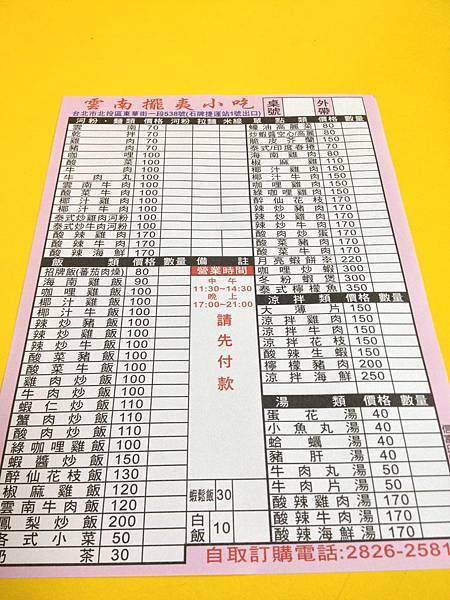 雲南擺夷小吃 桌號 外帶
台北市北投區東華街一段538號(石牌捷運站1號出口)
河粉、麵類 價格 河粉 拉麵 米線
雲南 70
乾拌 70
雞肉 70
豬肉 70
咖哩 100
牛肉 100
牛肉丸 100
雲南牛肉 100
酸菜牛肉 100
咖哩雞肉 100
咖哩牛肉 100
椰汁雞肉 100
椰汁牛肉 100
泰式炒雞肉河粉 100
泰式炒牛肉河粉 100
酸辣雞肉 170
酸辣牛肉 170
酸辣海鮮 170
飯類 價格 數量 備註
招牌飯(蕃茄肉燥) 80
海南雞飯 90
咖哩雞飯 100
椰汁雞飯 100
椰汁牛飯 100
辣炒豬飯 100
辣炒雞飯 100
辣炒牛飯 100
酸菜豬飯 100
酸菜牛飯 100
雞肉炒飯 100
牛肉炒飯 100
蝦仁炒飯 110
蟹肉炒飯 110
酸肉炒飯 110
綠咖哩雞飯 100
蝦醬炒飯 150
醉仙花枝飯 130
椒麻雞飯 120
雲南牛肉飯 120
鳳梨炒飯 200
各式小菜 50
奶茶 30
營業時間
中午
11:30~14:30
晚上
17:00~21:00
請先付款
蝦鬆飯 30
白飯 10
單點類 價格 數量
蠔油高麗菜 80
炒蝦醬空心/高麗 80
脆皮芥蘭 150
泰式/印度春捲 70
海南雞肉 80
椒麻雞 110
椰汁雞肉 150
椰汁牛肉 150
咖哩雞肉 150
綠咖哩雞肉 150
醉仙花枝 170
辣炒雞肉 170
辣炒豬肉 150
辣炒牛肉 170
酸肉炒蛋 170
酸菜豬肉 170
酸菜牛肉 170
月亮蝦餅※ 220
咖哩炒蝦 300
冬粉蝦煲 300
泰式檸檬魚 350
涼拌類 價格 數量
大薄片 150
涼拌雞肉 150
涼拌牛肉 150
涼拌花枝 150
酸辣生蝦 150
檸檬豬肉 200
涼拌海鮮 250
湯類 價格 數量
蛋花湯 40
小魚丸湯 40
蛤蠣湯 40
豬肝湯 40
牛肉丸湯 50
牛肉片湯 50
酸辣雞肉湯 170
酸辣牛肉湯 170
酸辣海鮮湯 170
自取訂購電話:2826-2581